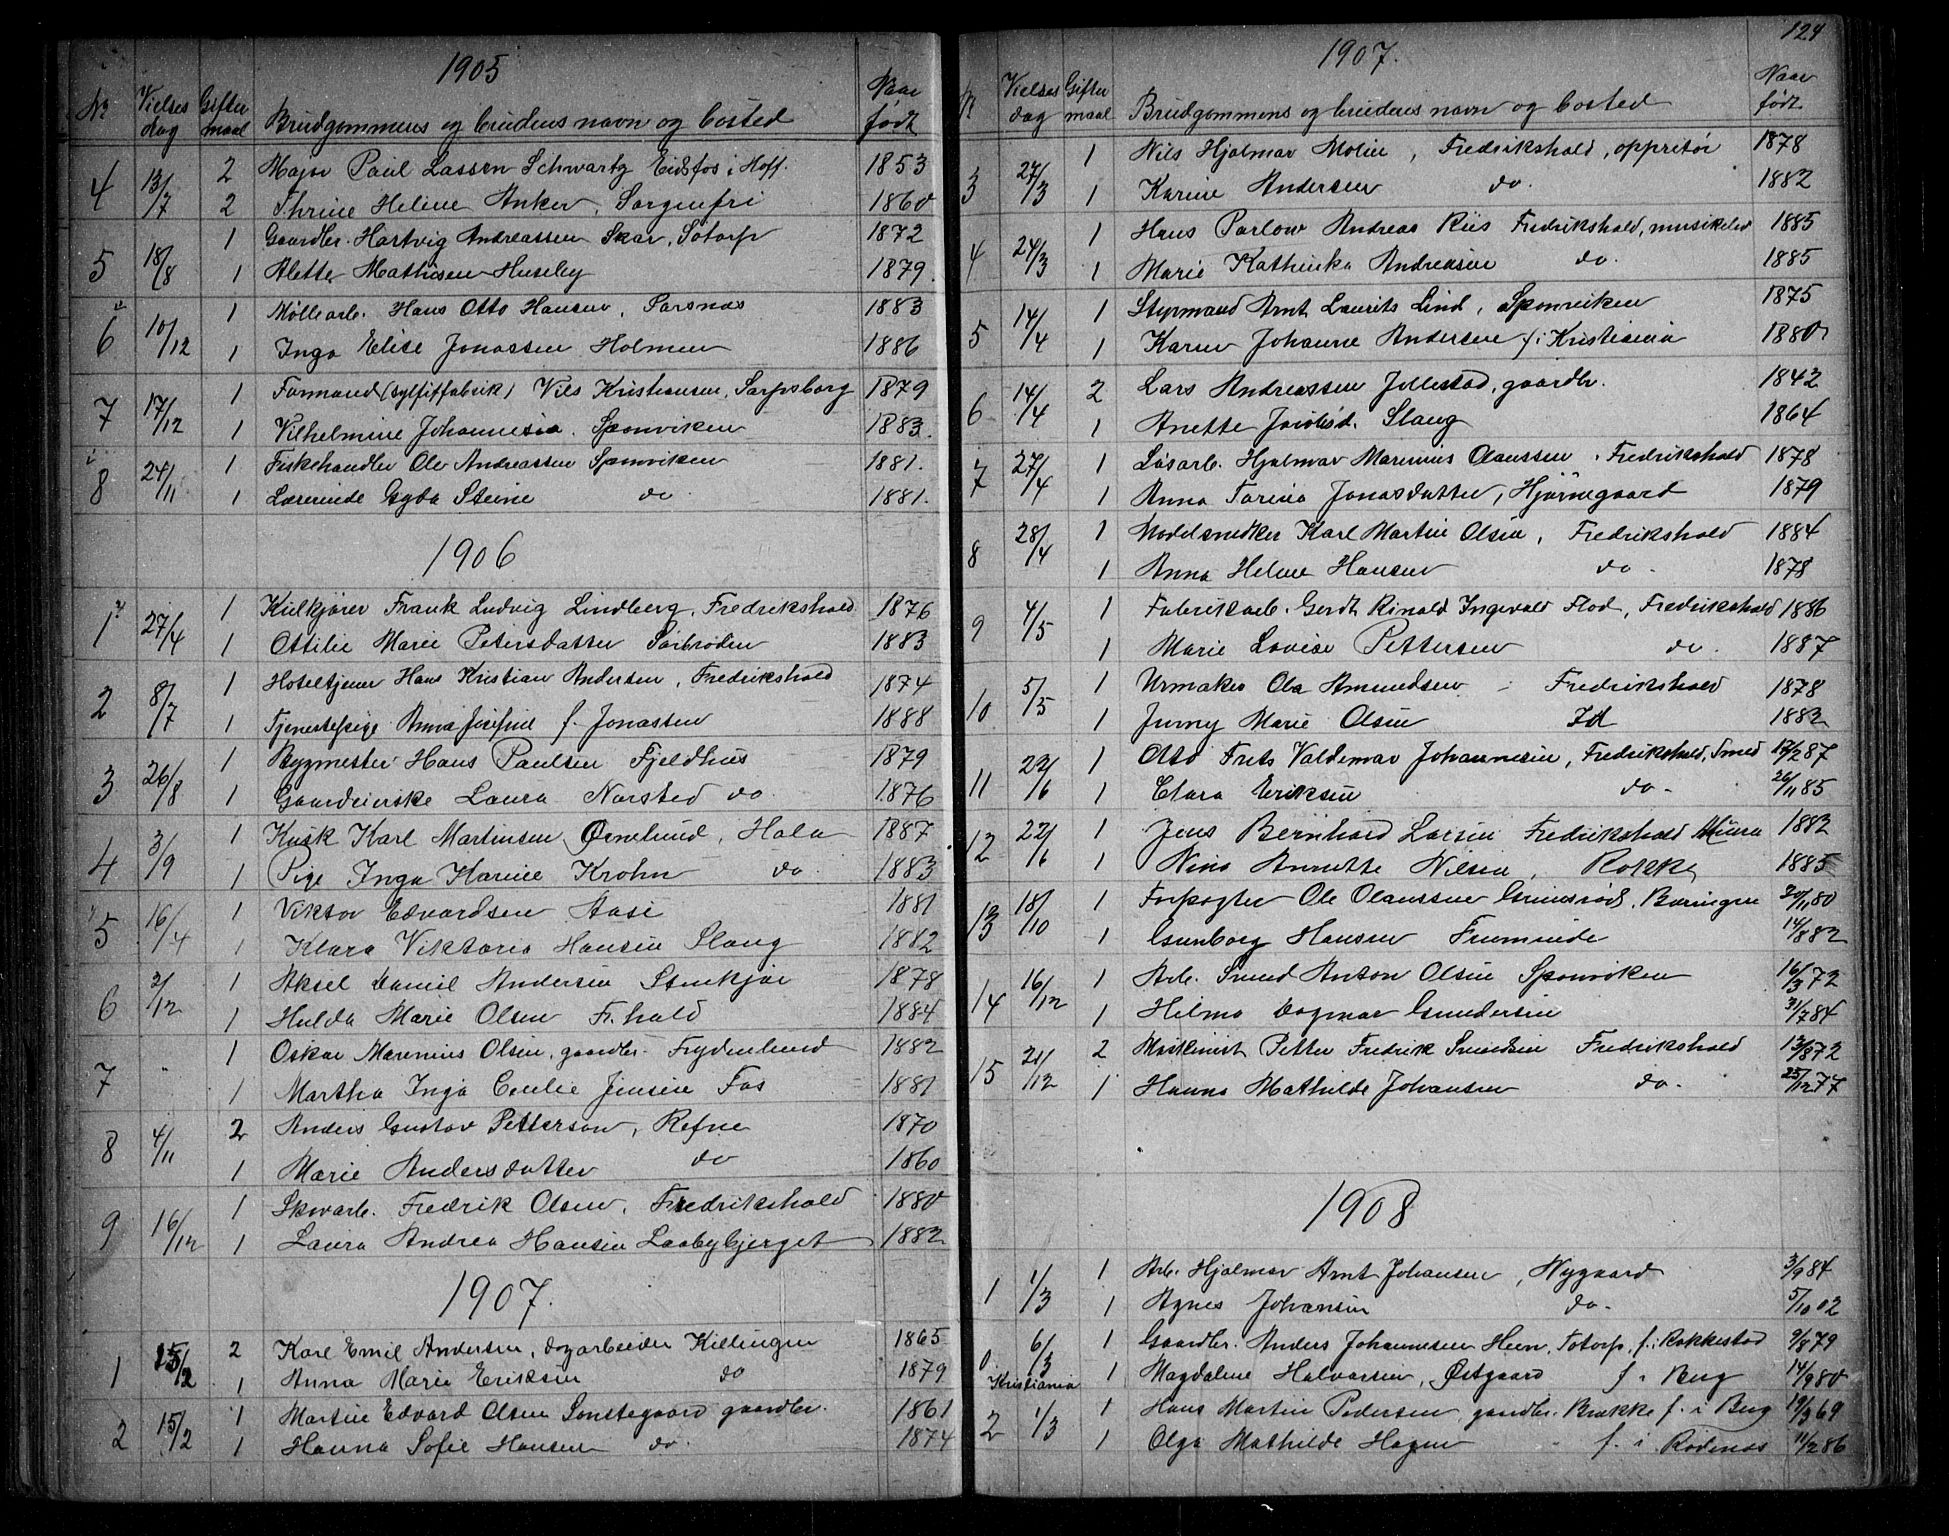 1905
Nr Vielses dag Gifter maal Brudgommens og brudens navn og bosted Naar født
4 13/7 2 Major Paul Lassen Schwartz Eidsfos i Hoff. 1853
2 Thrine Helene Anker, Sorgenfri 1860
5 18/8 1 Gaardbr. Hartvig Andreassen Skar, Sotorp 1872
1 Alette Mathisen Huseby 1879.
6 10/12 1 Møllearb. Hans Otto Hansen, Sarsnæs 1883
1 Inga Elise Jonassen Holmen 1886
7 17/12 1 Formand (sylfitfabrik) Nils Kristiansen, Sarpsborg 1879
1 Vilhelmine Johannesen. Sponviken 1883.
8 24/11 1 Fiskehandler Ole Andreassen Sponviken 1881.
1 Lærerinde Gyda Steine do 1881.
1906
1 27/4 1 Kulkjører Frank Ludvig Lindberg, Fredrikshald 1876
1 Ottilie Marie Petersdatter Sørbrøden 1883
2 8/7 1 Hoteltjener Hans Kristian Andersen, Fredrikshald 1874
1 Tjenestepige Anna Josefine f. Jonassen 1888
3 26/8 1 Bygmester Hans Paulsen Fjeldhus 1879
1 Gaardeierske Laura Norsted do 1876
4 3/9 1 Kusk Karl Martinsen Ørnelund, Hola 1887
1 Pige Inga Karine Krohn do. 1883
5 16/4 1 Viktor Edvardsen Aase 1881
1 Klara Viktoria Hansen Slang 1882
6 2/12 1 Aksel Daniel Andersen Stenkjær 1878
1 Hulda Marie Olsen F.hald 1884
7 1 Oskar Marenius Olsen, gaardbr. Frydenlund 1882
1 Martha Inga Cecilie Jensen Fos 1881
8 4/11 2 Anders Gustav Petterson, Refne 1870
1 Marie Andersdatter do 1860
9 16/12 1 Skoarb. Fredrik Olsen, Fredrikshald 1880
1 Laura Andrea Hansen Laabybjerget 1882
1907.
1 15/2 2 Karl Emil Andersen, dagarbeider Killingen 1865
1 Anna Marie Eriksen do 1879
2 15/2 1 Martin Edvard Olsen Sonstegaard gaardbr. 1861
1 Hanna Sofie Hansen do. 1874
124
1907.
N Vielses dag Gifter maal Brudgommens og brudens navn og bosted Naar født.
3 27/3 1 Nils Hjalmar Molin, Fredrikshald, oppretør 1878
1 Karine Andersen do. 1882
4 24/3 1 Hans Parlow Andreas Riis Fredrikshald, musikelev 1885
1 Marie Kathinka Andreasen do. 1885
5 14/4 1 Styrmand Arnt Laurits Lind, Sponviken 1875
1 Karen Johanne Andersen f. i Kristiania 1880
6 14/4 2 Lars Andreassen Jellestad, gaardbr. 1842
1 Anette Jacobsd. Slang 1864
7 27/4 1 Løsarb. Hjalmar Marenius Claussen, Fredrikshald 1878
1 Anna Torina Jonasdatter, Hjørnegaard 1879
8 28/4 1 Modelsnedker Karl Martin Olsen, Fredrikshald 1884
1 Anna Helene Hansen do. 1878
9 4/5 1 Fabrikarb. Gerdt Rinald Ingevald Flod, Fredrikshald 1886
1 Marie Lovise Pettersen do. 1887
10 5/5 1 Urmaker Ola Amundsen Fredrikshald 1878
1 Jenny Marie Olsen Id 1882
11 22/6 1 Otto Frits Valdemar Johannesen, Fredrikshald, Smed 12/2 87
1 Clara Eriksen do. 26/11 85
12 22/6 1 Jens Bernhard Larsen Fredrikshald Murer 1882
1 Nina Annette Nilsen, Rokke 1885
13 18/10 1 Forpagter Ole Olaussen Grimsrød, Berningen 20/11 80
1 Gunborg Hansen Fuemunde 14/8 82
14 16/12 1 Arb. Svend Anton Olsen Sponviken 16/3 72
1 Helma Dagmar Gundersen 31/7 84
15 21/12 2 Maskinist Petter Fredrik Svendsen Fredrikshald 13/8 72
1 Hanna Mathilde Johansen do. 25/12 77
1908
1 1/3 1 Arb. Hjalmar Arnt Johansen, Nygaard 3/9 84
1 Agnes Johansen do. 5/10 02
0. Kristiania 6/3 1 Gaardbr. Anders Johannessen Heen, Totorp, f. i Rakkestad 9/8 79
1 Magdalene Halvorsen, Østgaard f. i Berg 14/9 80
2 1/3 1 Hans Martin Pedersen gaardbr. Brække f. i Berg 19/3 69
1 Olga Mathilde Hagen f. i Rødenæs 11/2 86